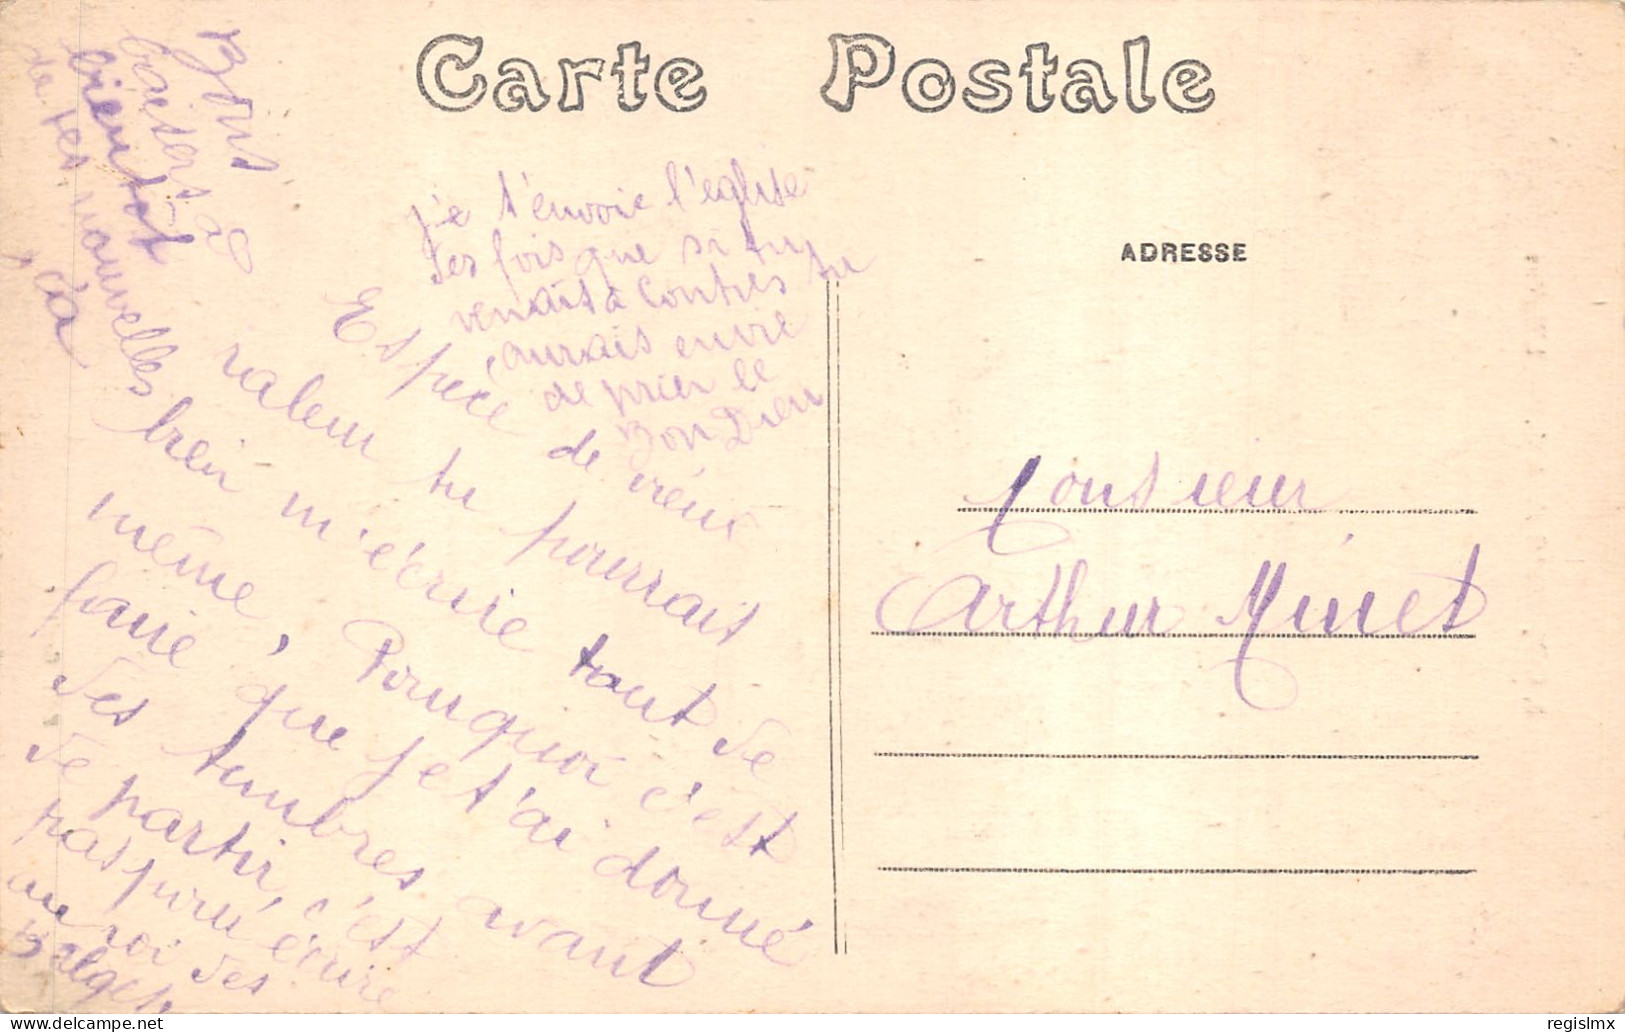 Carte Postale
ADRESSE
je t'envoie l'eglise
des fois que si tu
venait à Contres tu
aurais envie
de prier le
Bon Dieu
Espèce de vieux
raleur tu pourrait
bien m'écrire tout de
même, Pourquoi c'est
faire que je t'ai donné
des timbres avant
de partir, c'est
pas pour écrire
au roi des
Belges.
Bons
baisers à
bientot
de tes nouvelles
Monsieur
Arthur Minet
regislmx
delcampe.net